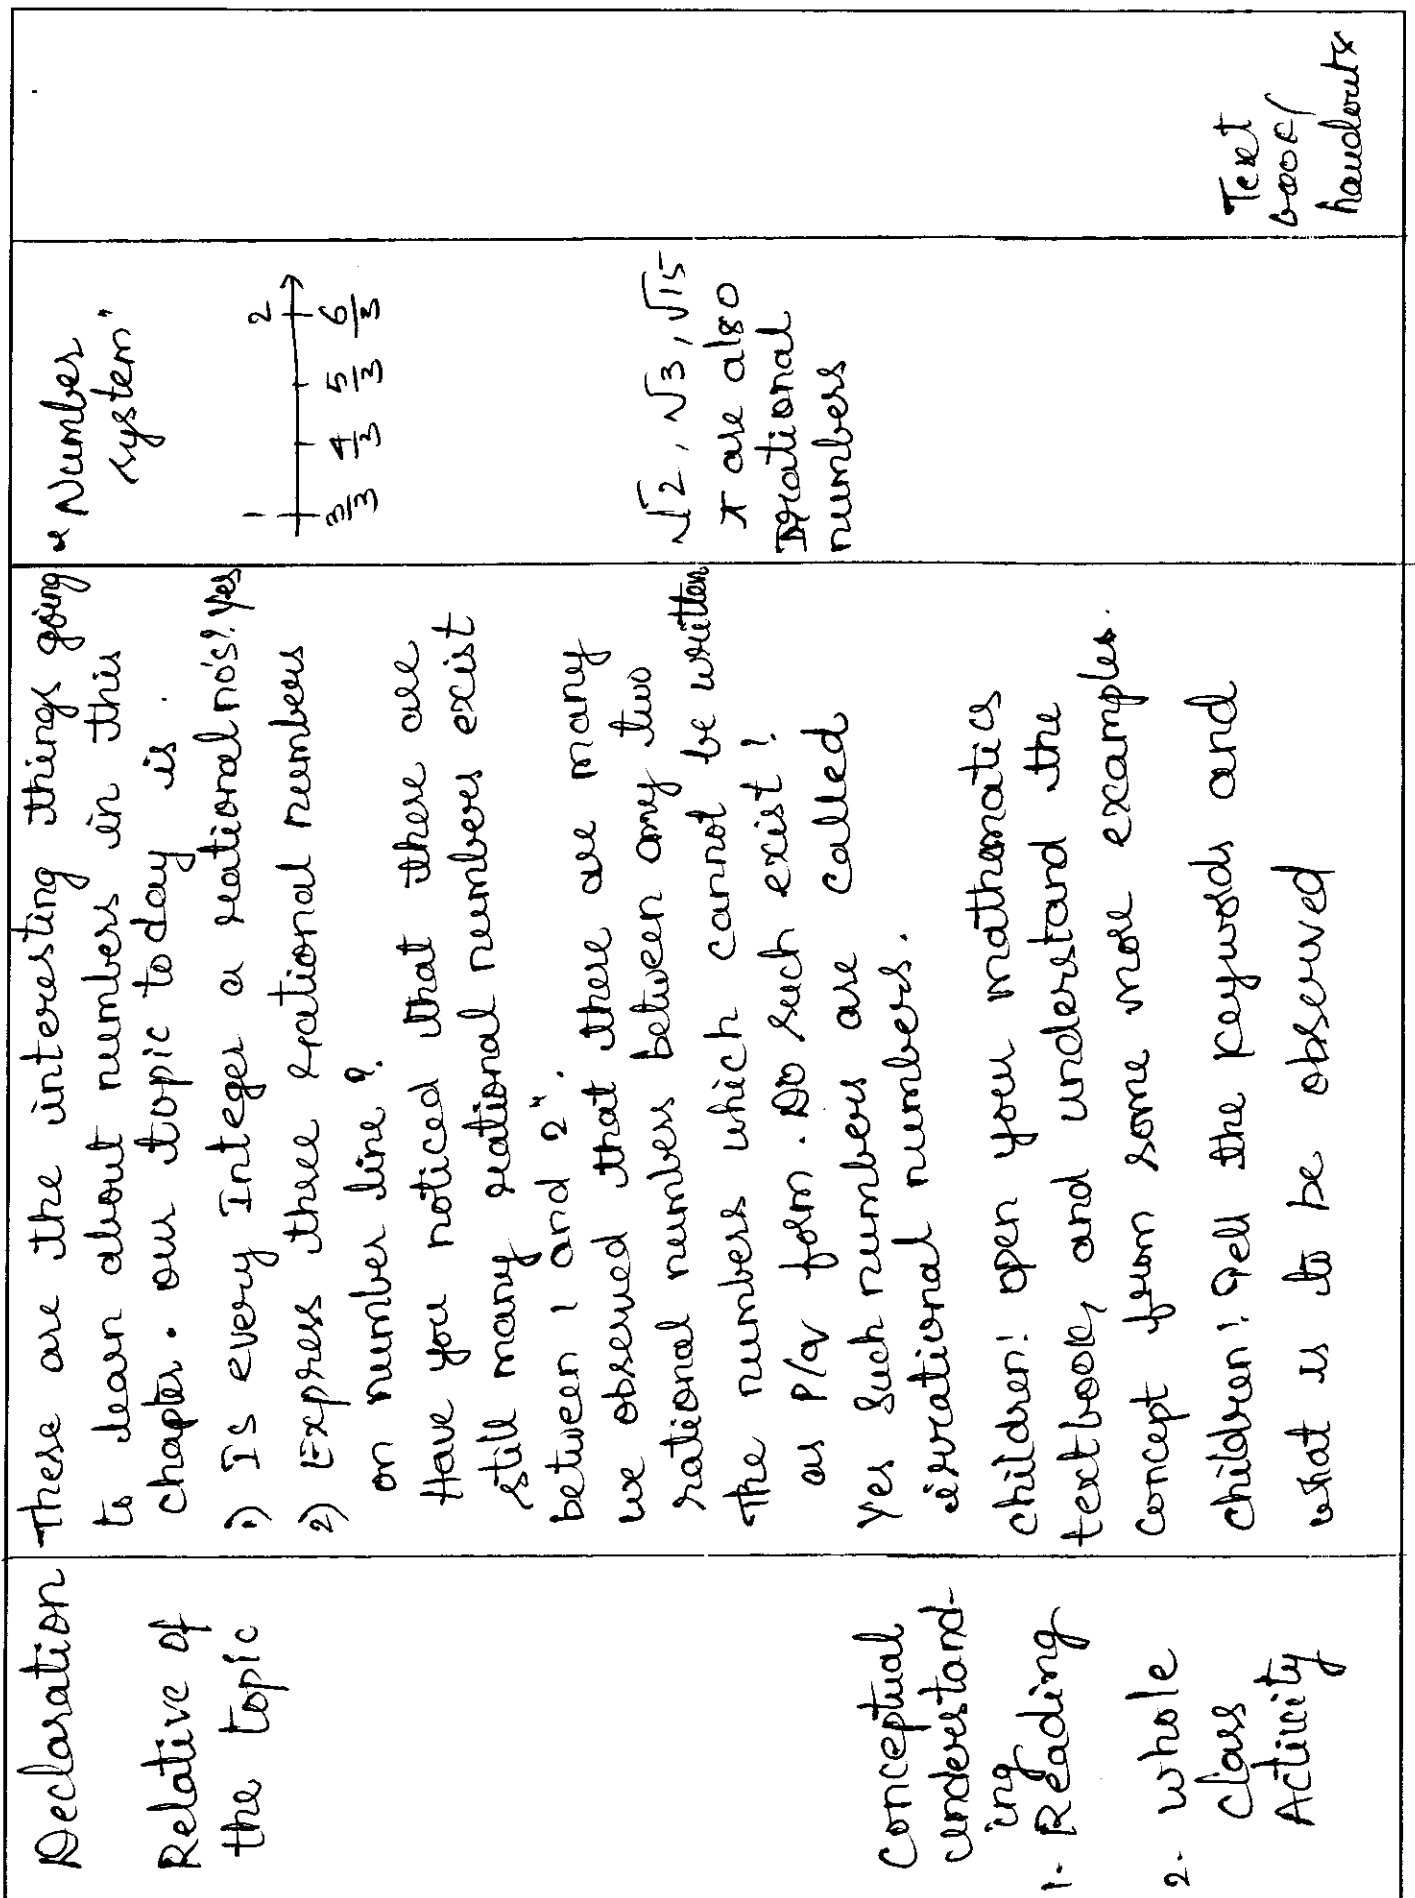 Declaration
Relative of
the topic
Conceptual
understand-
ing
1- Reading
2- whole
Class
Activity
These are the interesting things going
to learn about numbers in this
chapter. our topic today is
1) Is every Integer a rational no's? yes
2) Express these rational numbers
on number line?
Have you noticed that there are
still many rational numbers exist
between 1 and 2".
we observed that there are many
rational numbers between any two
The numbers which cannot be written
as P/q form. Do such exist!
Yes Such numbers are called
irrational numbers.
children! open your mathematics
textbook, and understand the
concept from some more examples.
children! Tell the keywords and
what is to be observed
"Number
system"
1 2
3/3 4/3 5/3 6/3
√2, √3, √15
π are also
Irrational
numbers
Text
book/
handouts